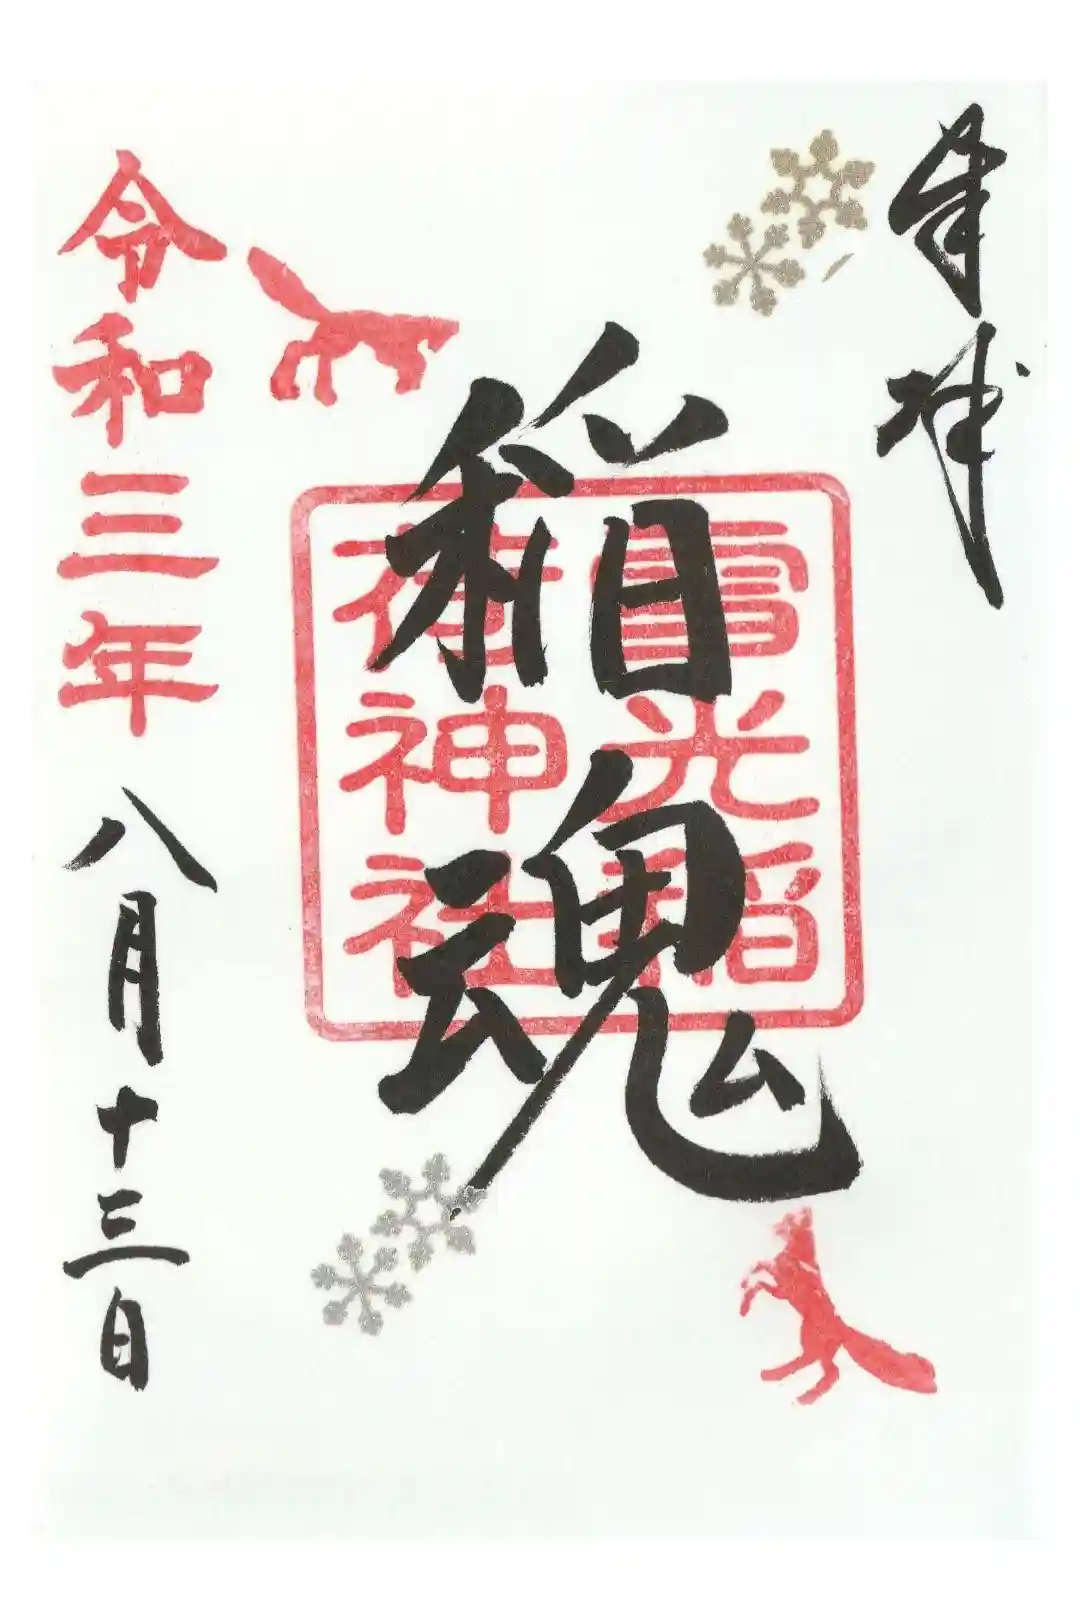 奉拝
稲魂
雪光稲
荷神社
令和三年 八月十三日